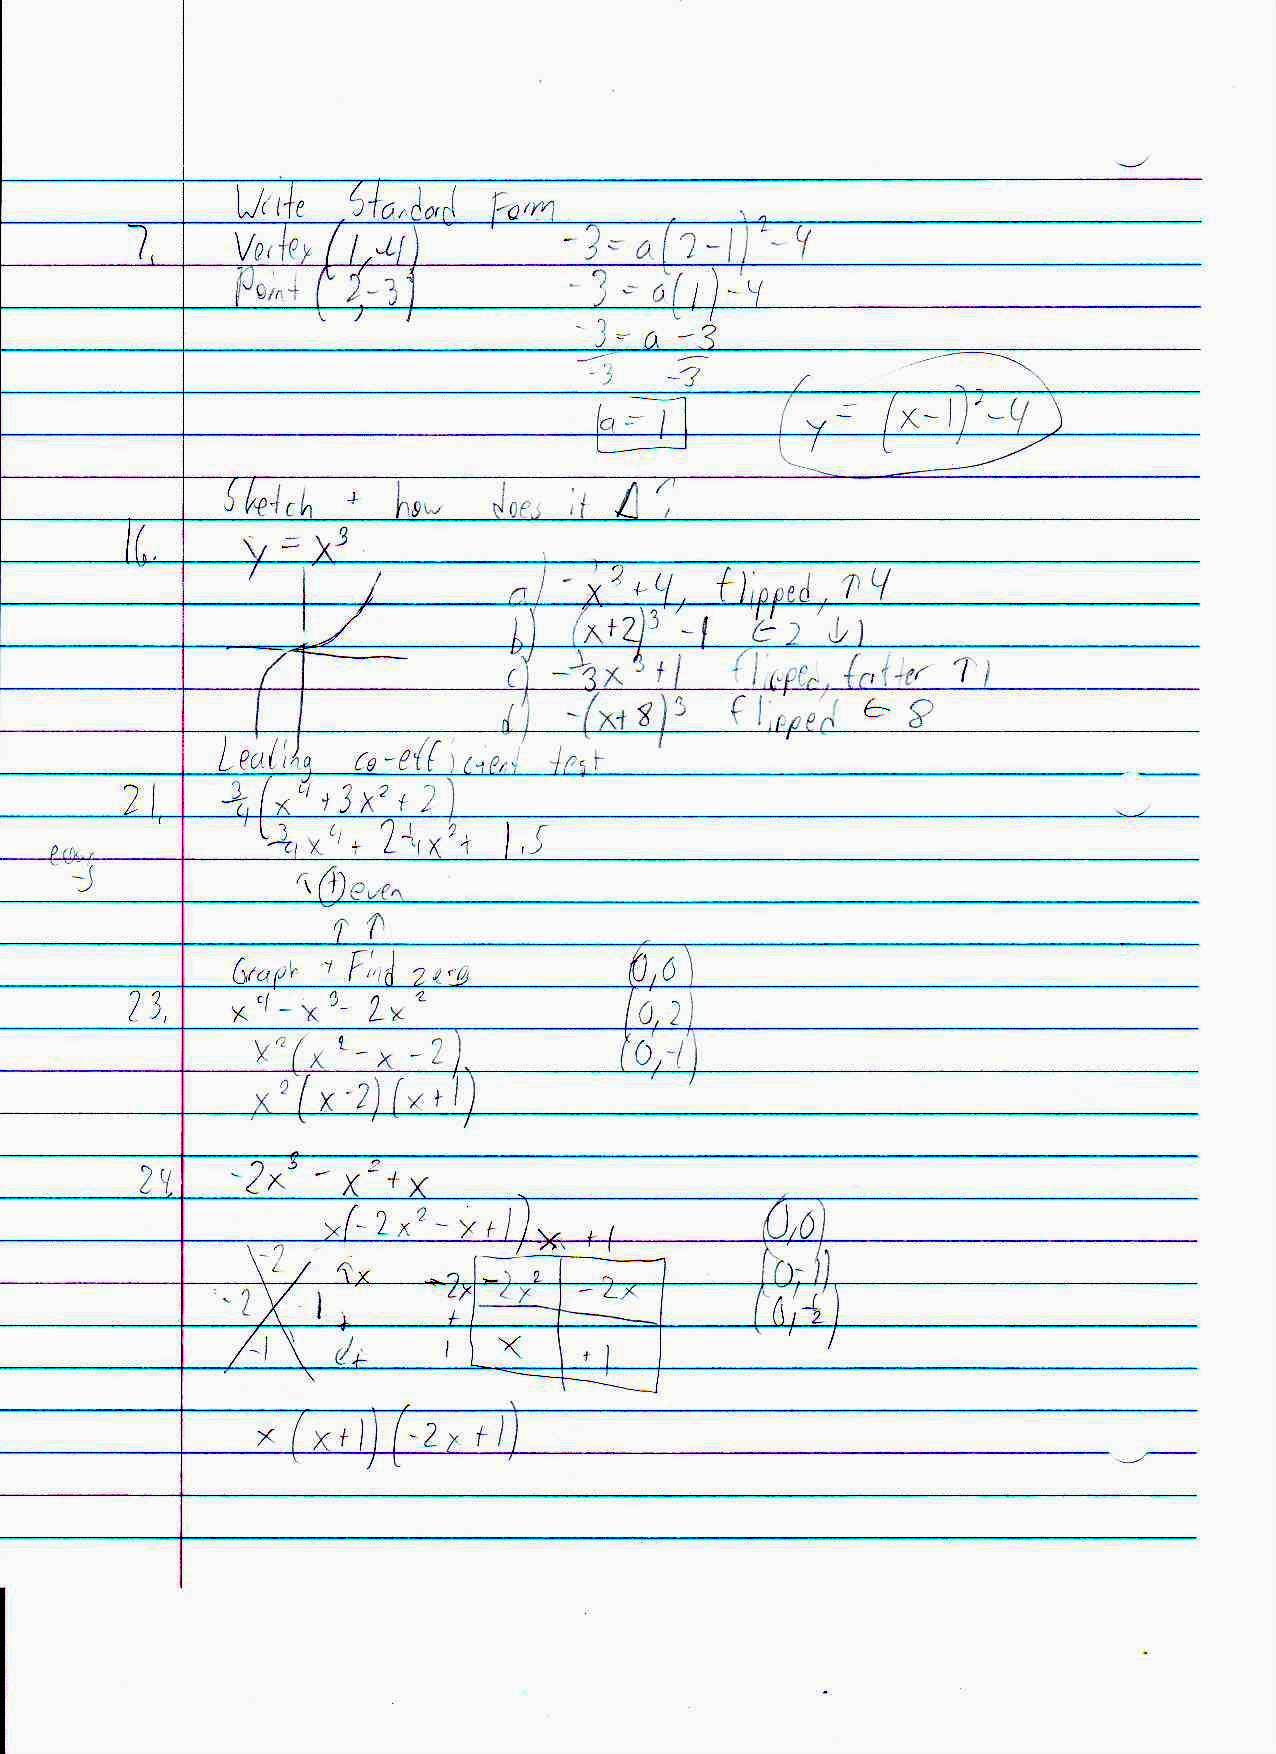 Write Standard Form
7. Vertex (1,-4) -3 = a(2-1)² - 4
Point (2,-3) -3 = a(1) - 4
-3 = a - 3
-3 -3
a = 1 y = (x-1)² - 4
Sketch + how does it Δ?
16. y = x³
a) -x³+4, flipped, ↑4
b) (x+2)³ -1 ←2 ↓1
c) -1/3x³+1 flipped, fatter ↑1
d) -(x+8)³ flipped ← 8
Leading co-efficient test
21. 3/4(x⁴+3x²+2)
3/4x⁴ + 2 1/4x² + 1.5
easy
↑ (+) even
↑ ↑
Graph + Find zero (0,0)
23. x⁴ - x³ - 2x² (0,2)
x²(x² - x - 2) (0,-1)
x²(x-2)(x+1)
24. -2x³ - x² + x
x(-2x² - x + 1) x +1 (0,0)
-2 ↑x -2x -2x² -2x (0,-1)
-2 1 + + (0,1/2)
-1 1 x +1
x(x+1)(-2x+1)